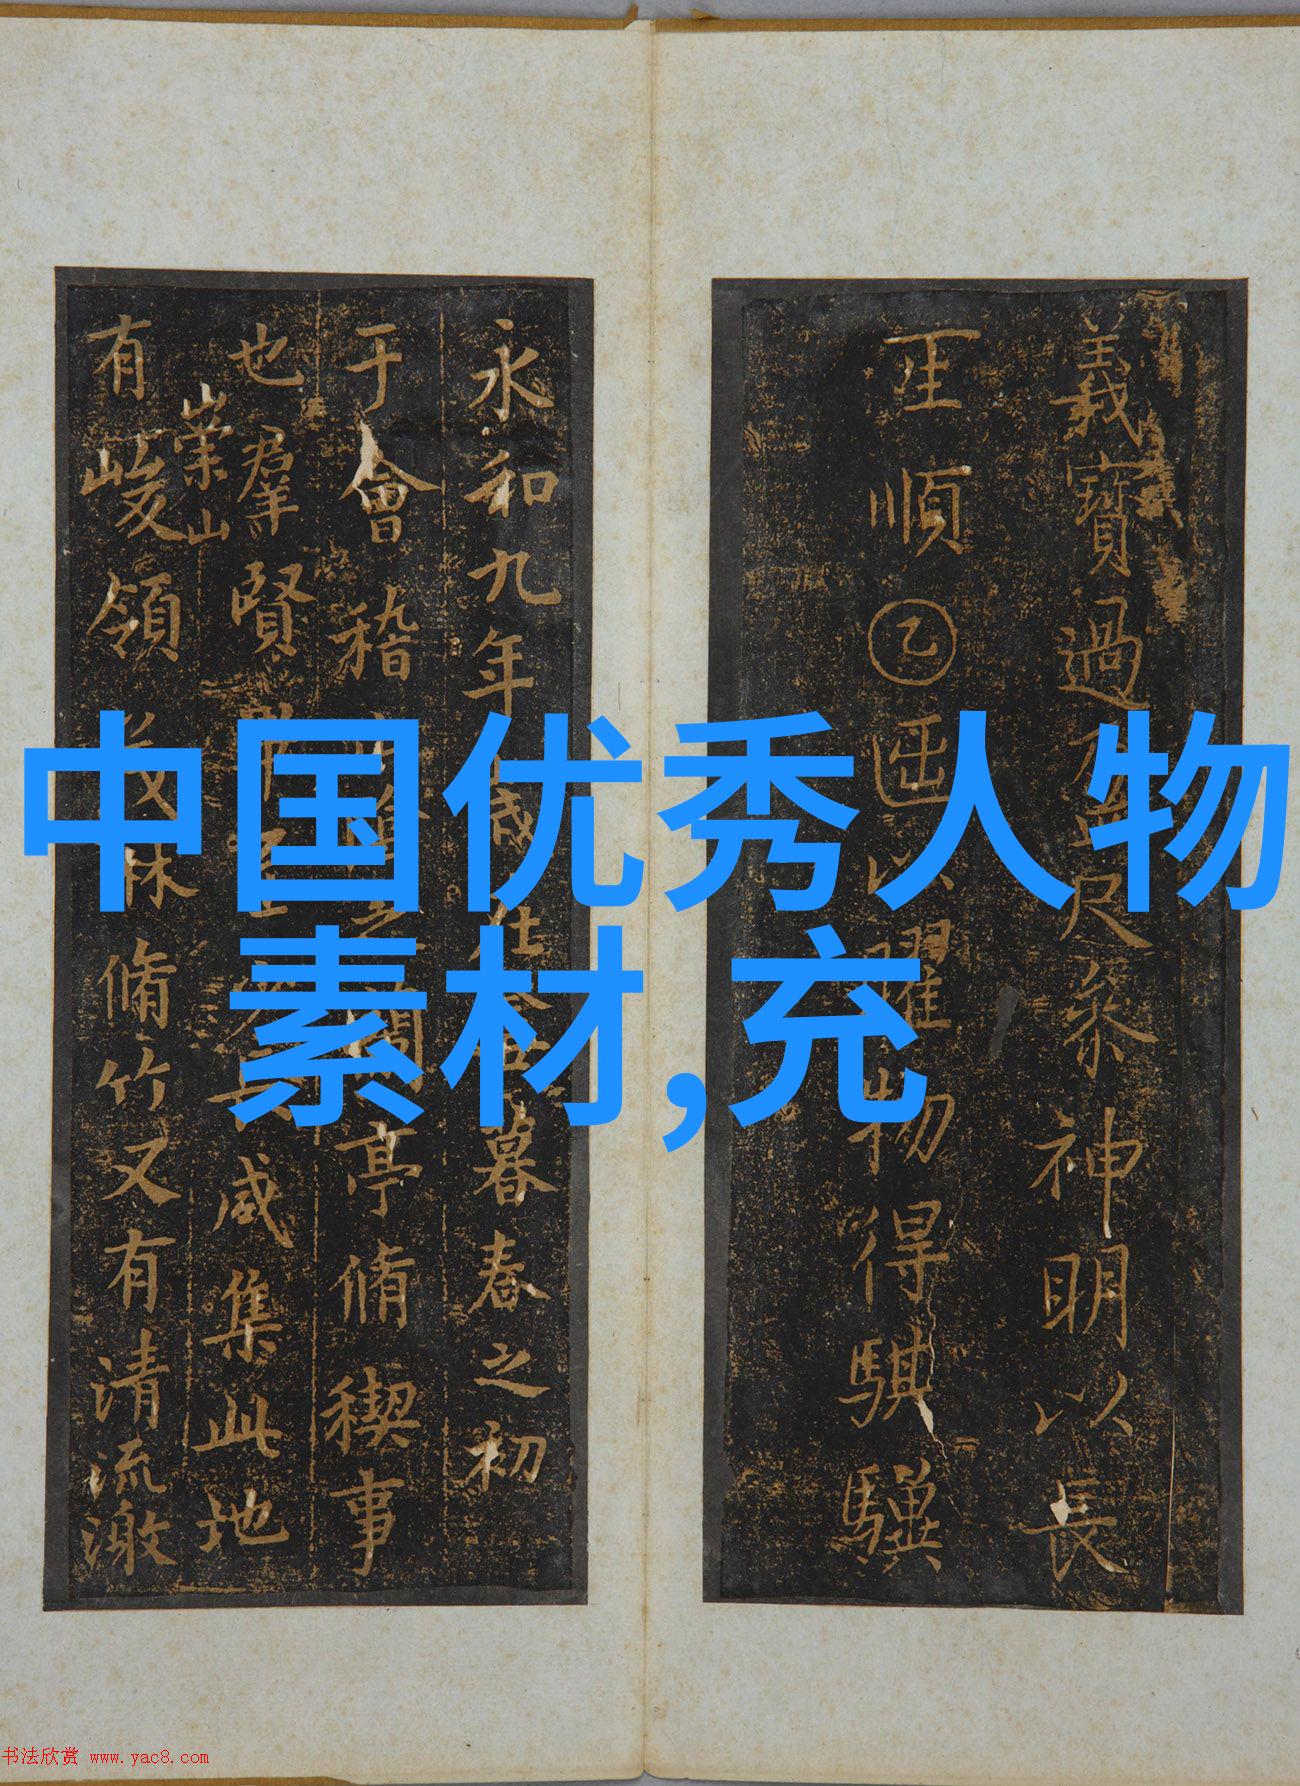 中国优秀人物
素材,充
義寶過盈尺參神明以長
順乙以曜物得騏驥
永和九年歲在癸丑暮春之初
于會稽山陰之蘭亭脩禊事
也羣賢畢至少長咸集此地
崇山
有峻領茂林脩竹又有清流激
书法欣赏 www.yac8.com